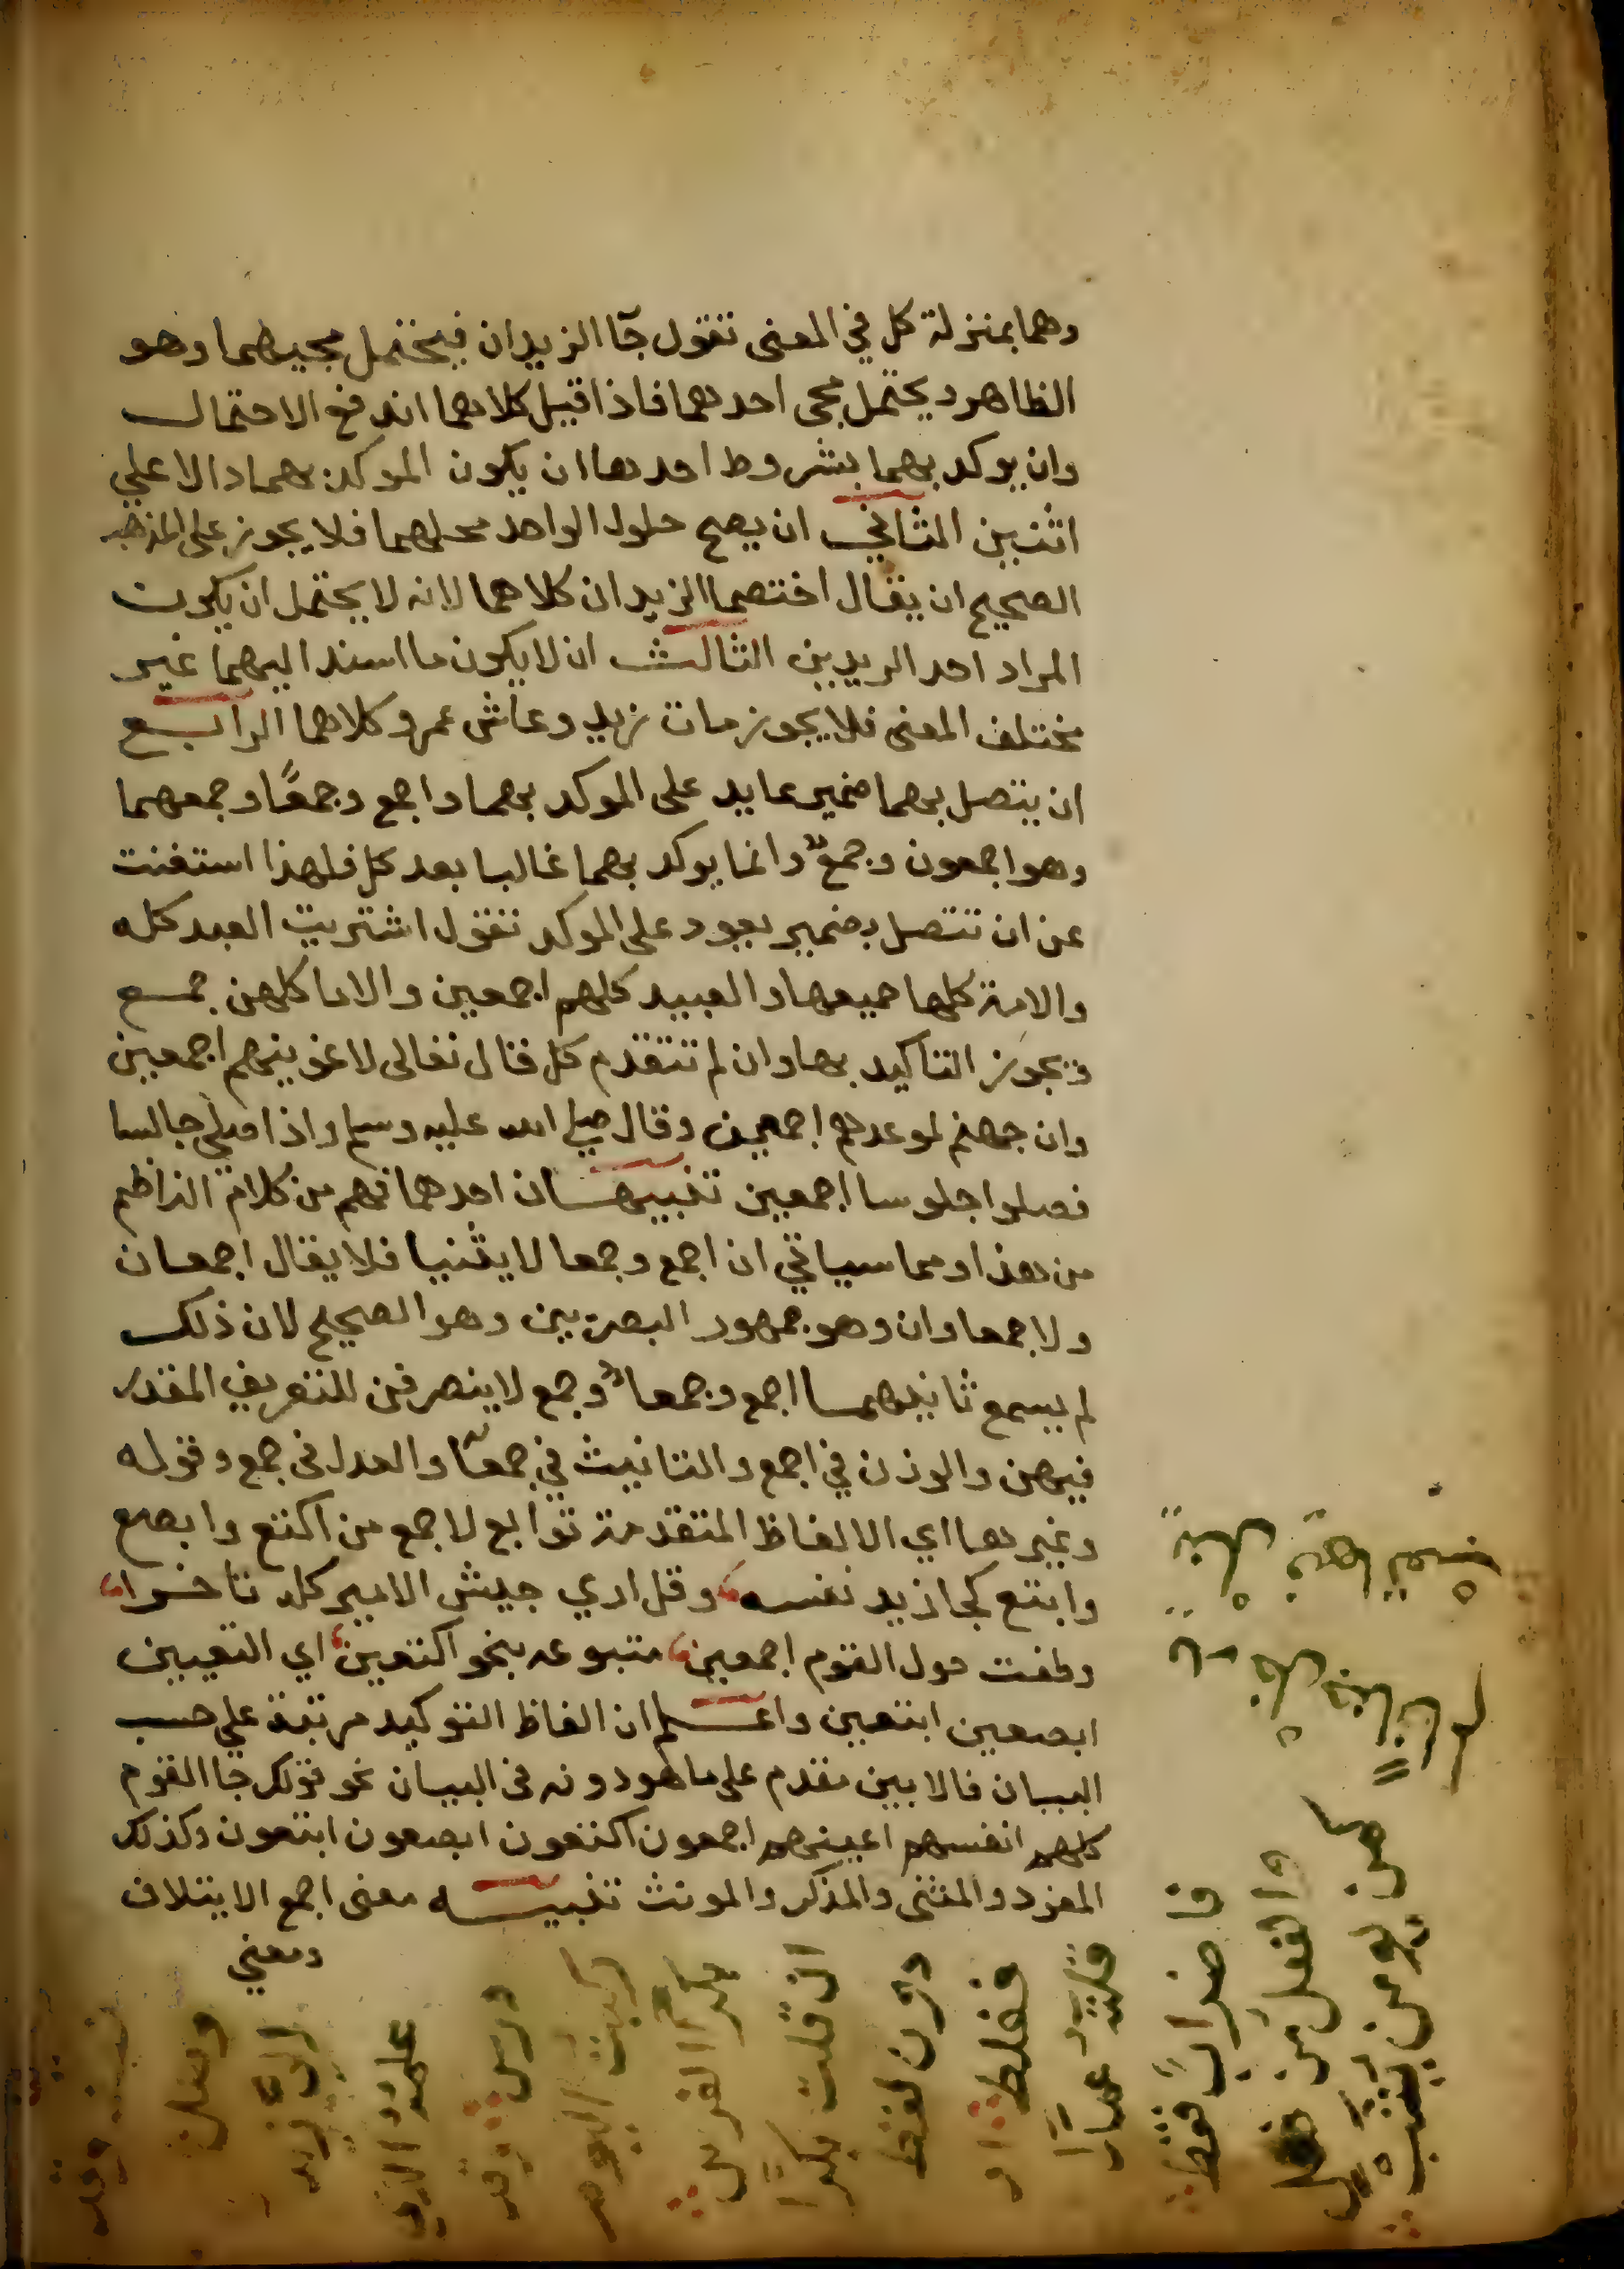 وهما بمنزلة كل في المعنى تقول جآ الزيدان فيحتمل مجيهما وهو
الظاهر ويحتمل مجي احدهما فاذا قيل كلاهما اندفع الاحتمال
وان يوكد بهما بشروط احدها ان يكون الموكد بهما دالا علي
اثنين الثاني ان يصح حلول الواحد محلهما فلا يجوز على المذهب
الصحيح ان يقال اختصما الزيدان كلاهما لانه لا يحتمل ان يكون
المراد احد الزيدين الثالث ان لا يكون ما اسند اليهما غير
مختلف المعنى فلا يجوز مات زيد وعاش عمرو كلاهما الرابع
ان يتصل بهما ضمير عايد على الموكد بهما واجمع وجمعآ وجمعهما
وهو اجمعون وجمع وانما يوكد بهما غالبا بعد كل فلهذا استغنت
عن ان تتصل بضمير يعود على الموكد تقول اشتريت العبد كله
والامة كلها جميعها والعبيد كلهم اجمعين والاما كلهن جمع
ويجوز التاكيد بها وان لم تتقدم كل قال تعالى لاغوينهم اجمعين
وان جهنم لموعدهم اجمعين وقال صلي الله عليه وسلم واذا صلي جالسا
فصلوا جلوسا اجمعين تنبيهان احدهما فهم من كلام الناظم
من هذا ومما سياتي ان اجمع وجمعا لا يثنيا فلا يقال اجمعان
ولا جمعاوان وهو جمهور البصريين وهو الصحيح لان ذلك
لم يسمع ثانيهما اجمع وجمعا وجمع لا ينصرفن للتعريف المقدر
فيهن والوزن في اجمع والتانيث في جمعآ والعدل في جمع وقوله
وغيرها اي الالفاظ المتقدمة توابع لاجمع من اكتع وابصع
وابتع كجا زيد نفسه وقل اري جيش الامير كله تاخرا
وطفت حول القوم اجمعين متبوعه بنحو اكتعين اي التعيين
ابصعين ابتعين واعلم ان الفاظ التوكيد مرتبة علي حسب
البيان فالابين مقدم على ما هو دونه في البيان نحو قولك جا القوم
كلهم انفسهم اعينهم اجمعون اكتعون ابصعون ابتعون وكذلك
المفرد والمثنى والمذكر والمونث تنبيه معنى اجمع الايتلاف
ومعني
والفعل من
فاضراب فقط
فغلط او
دون لفظ
ان قلت بكرًا
بكرًا الفرس